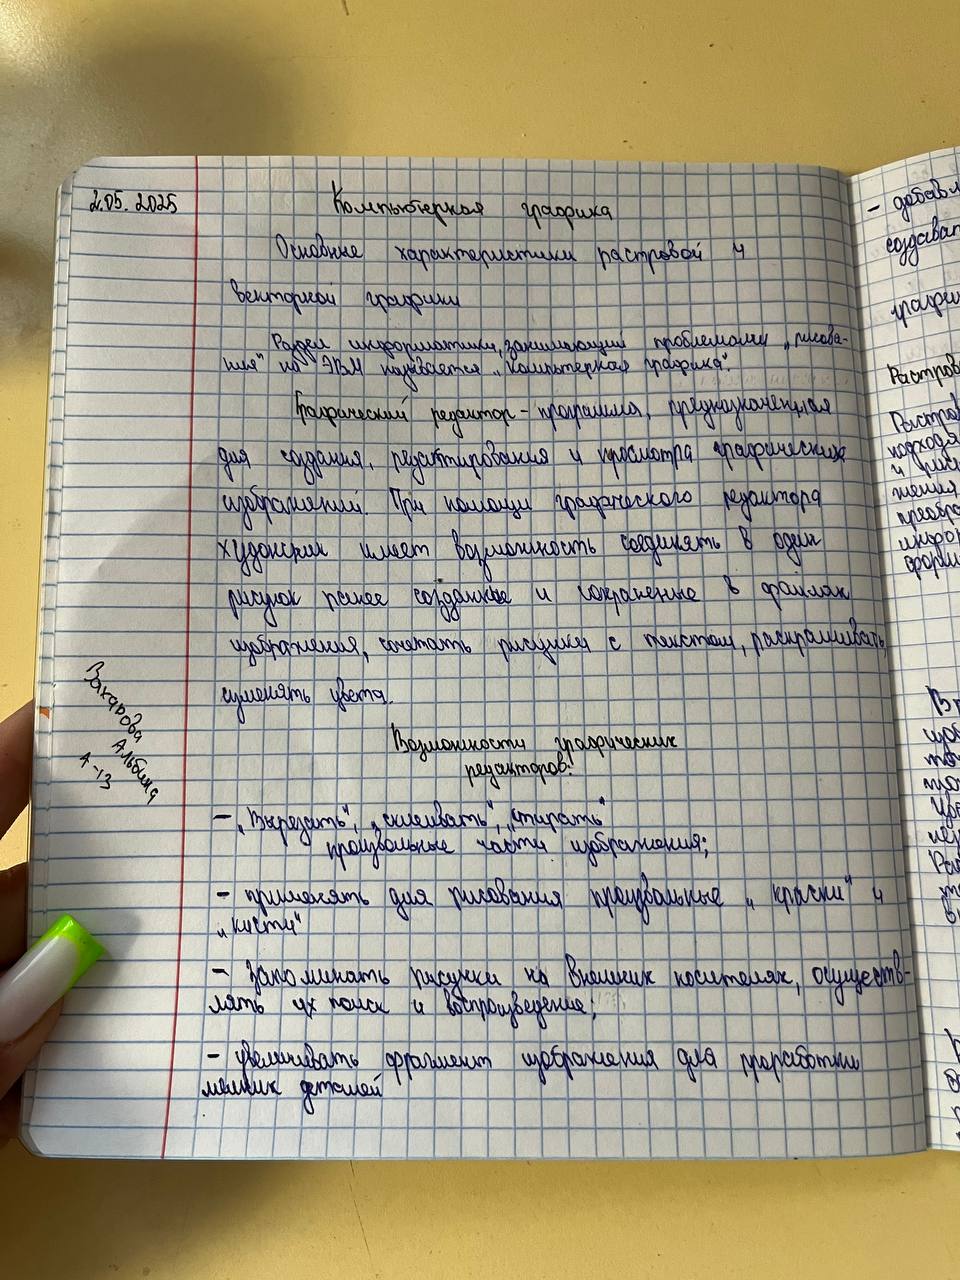 2.05.2025
Компьютерная графика
Основные характеристики растровой и
векторной графики
Раздел информатики, занимающий проблемами „рисова-
ния" на ЭВМ называется „компьтерная графика".
Графический редактор - программа, предназначенная
для создания, редактирования и просмотра графических
изображений. При помощи графического редактора
художник имеет возможность соединять в один
рисунок ранее созданное и сохраненные в файлах
изображения, сочетать рисунки с текстом, раскрашивать,
изменять цвета.
Возможности графических
редакторов:
- „Вырезать", „склеивать", „стирать"
произвольные части изображения;
- применять для рисования произвольные „краски" и
„кисти"
- Запоминать рисунки на внешних носителях, осуществ-
лять их поиск и воспроизведение;
- увеличивать фрагмент изображения для проработки
мелких деталей
Закарова
Альбина
А-13
- добавл
создават
график
Растров
Растров
подходя
и рис
жения
преобра
инфор
форм